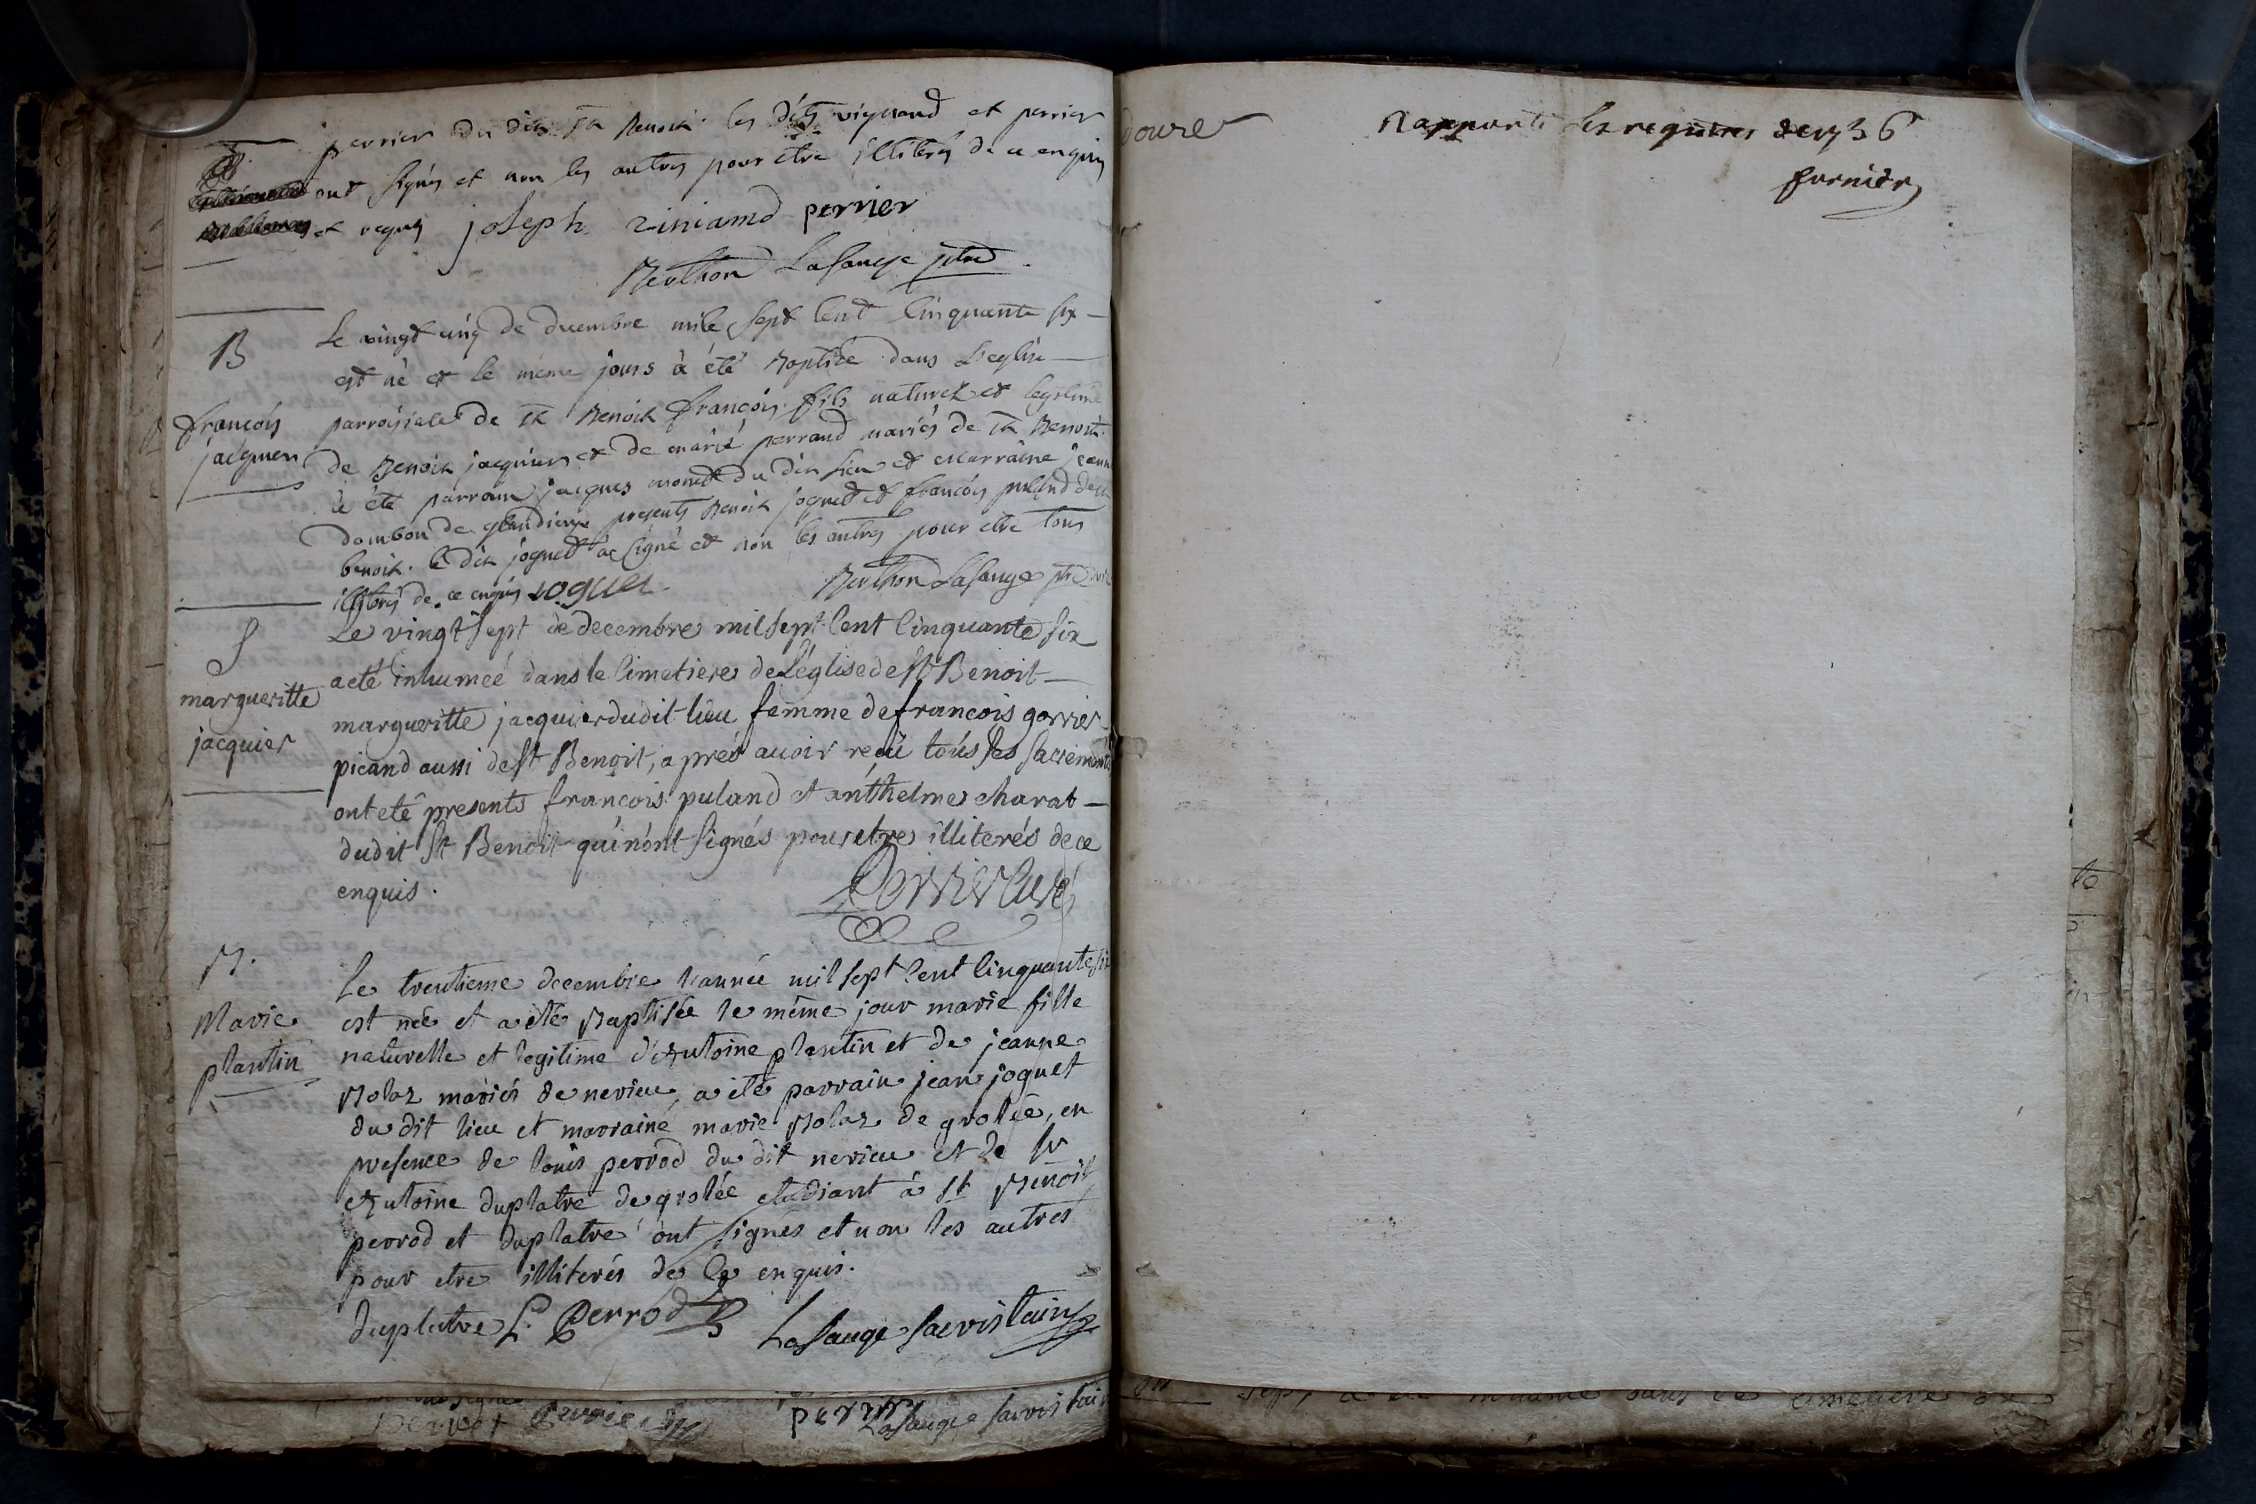 perrier du dit st Benoit les dits vignand et perrier
ont signés et non les autres pour etre illiterés de ce enquis
et requis joseph viniamd perrier
Berthon Lasauge ptre
B
françois
jacquier
Le vingt cinq de decembre mile sept cent cinquante six
est né et le même jours à été Baptisé dans L'eglise
parroisiale de st Benoit françois fils naturel et legitime
de Benoit jacquier et de marie perrand mariés de st Benoit
à été parrain jacques monet du dit lieu et marraine jeanne
dambon de glandieu presents Benoit joguet et françois puland de st
benoit. le dit joguet à signé et non les autres pour etre tous
illiterés de ce enquis joguet
Berthon Lasauge ptre
S
margueritte
jacquier
Le vingt sept de decembre mil sept cent cinquante six
a eté inhumeé dans le cimetiere de L'église de st Benoit
margueritte jacquier dudit lieu femme de francois gorrier
picand aussi de st Benoit, aprés avoir reçu tous les sacrements
ont eté presents françois puland et anthelme charat
dudit st Benoit qui n'ont signés pour etre illiterés de ce
enquis.
Perrier curé
B.
Marie
plantin
Le trentieme decembre l'année mil sept cent cinquante six
est née et a été Baptisée le même jour marie fille
naturelle et legitime d'Antoine plantin et de jeanne
Bolaz mariés de nerieu, a été parrain jean joguet
du dit lieu et marraine marie Bolaz de grolée, en
presence de loüis perrod du dit nerieu et de sr
Antoine duplatre de grolée etudiant à st Benoit
perrod et duplatre ont signés et non les autres
pour etre illiterés de ce enquis.
duplatre L. Perrod
Lasauge sacristain
perrier
Lasauge sacristain
douze
Rapporté les registres de 1736
furnier
cimetiere de